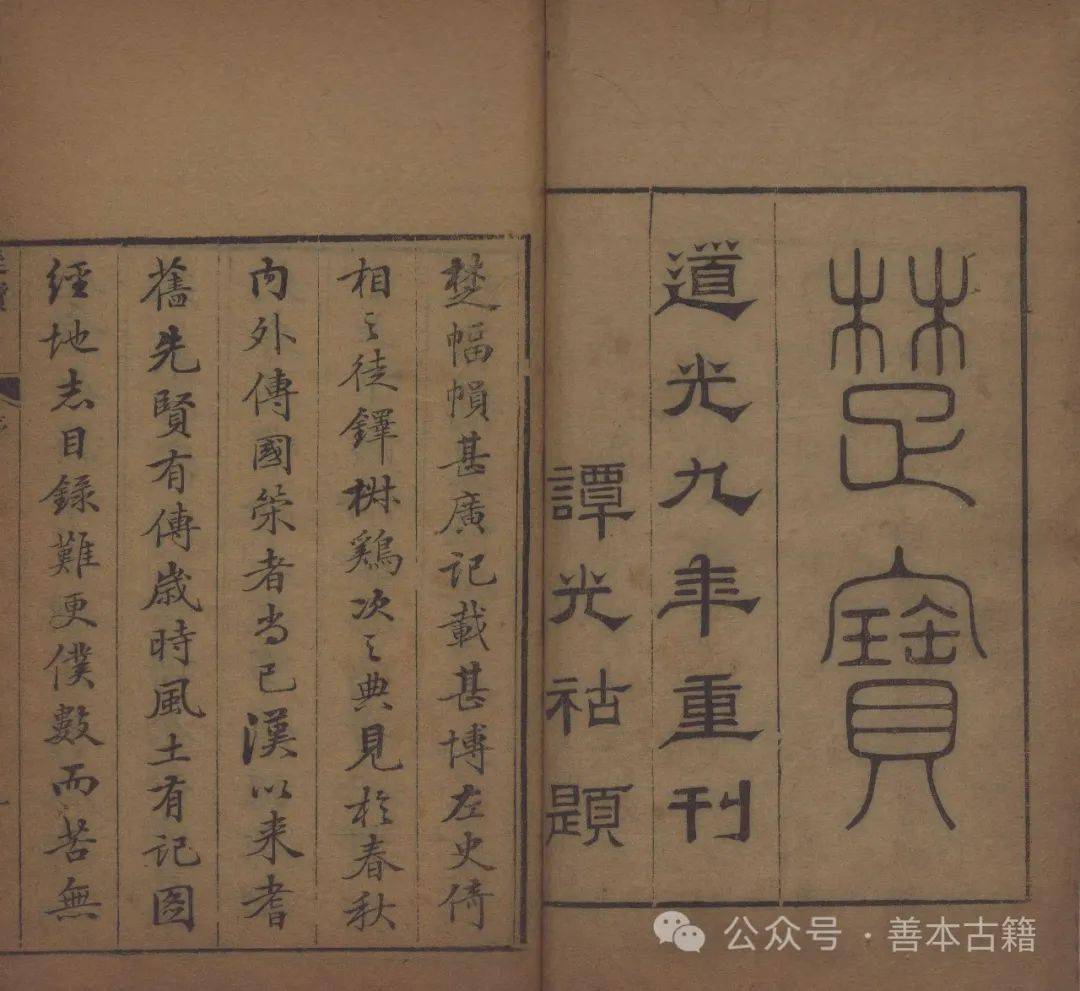 楚寶
道光九年重刊
譚光祜題
楚幅幀甚廣記載甚博左史倚
相之徒鐸椒鷄次之典見於春秋
內外傳國榮者尚已漢以来耆
舊先賢有傳歲時風土有記圖
經地志目錄難更僕數而苦無
公众号·善本古籍